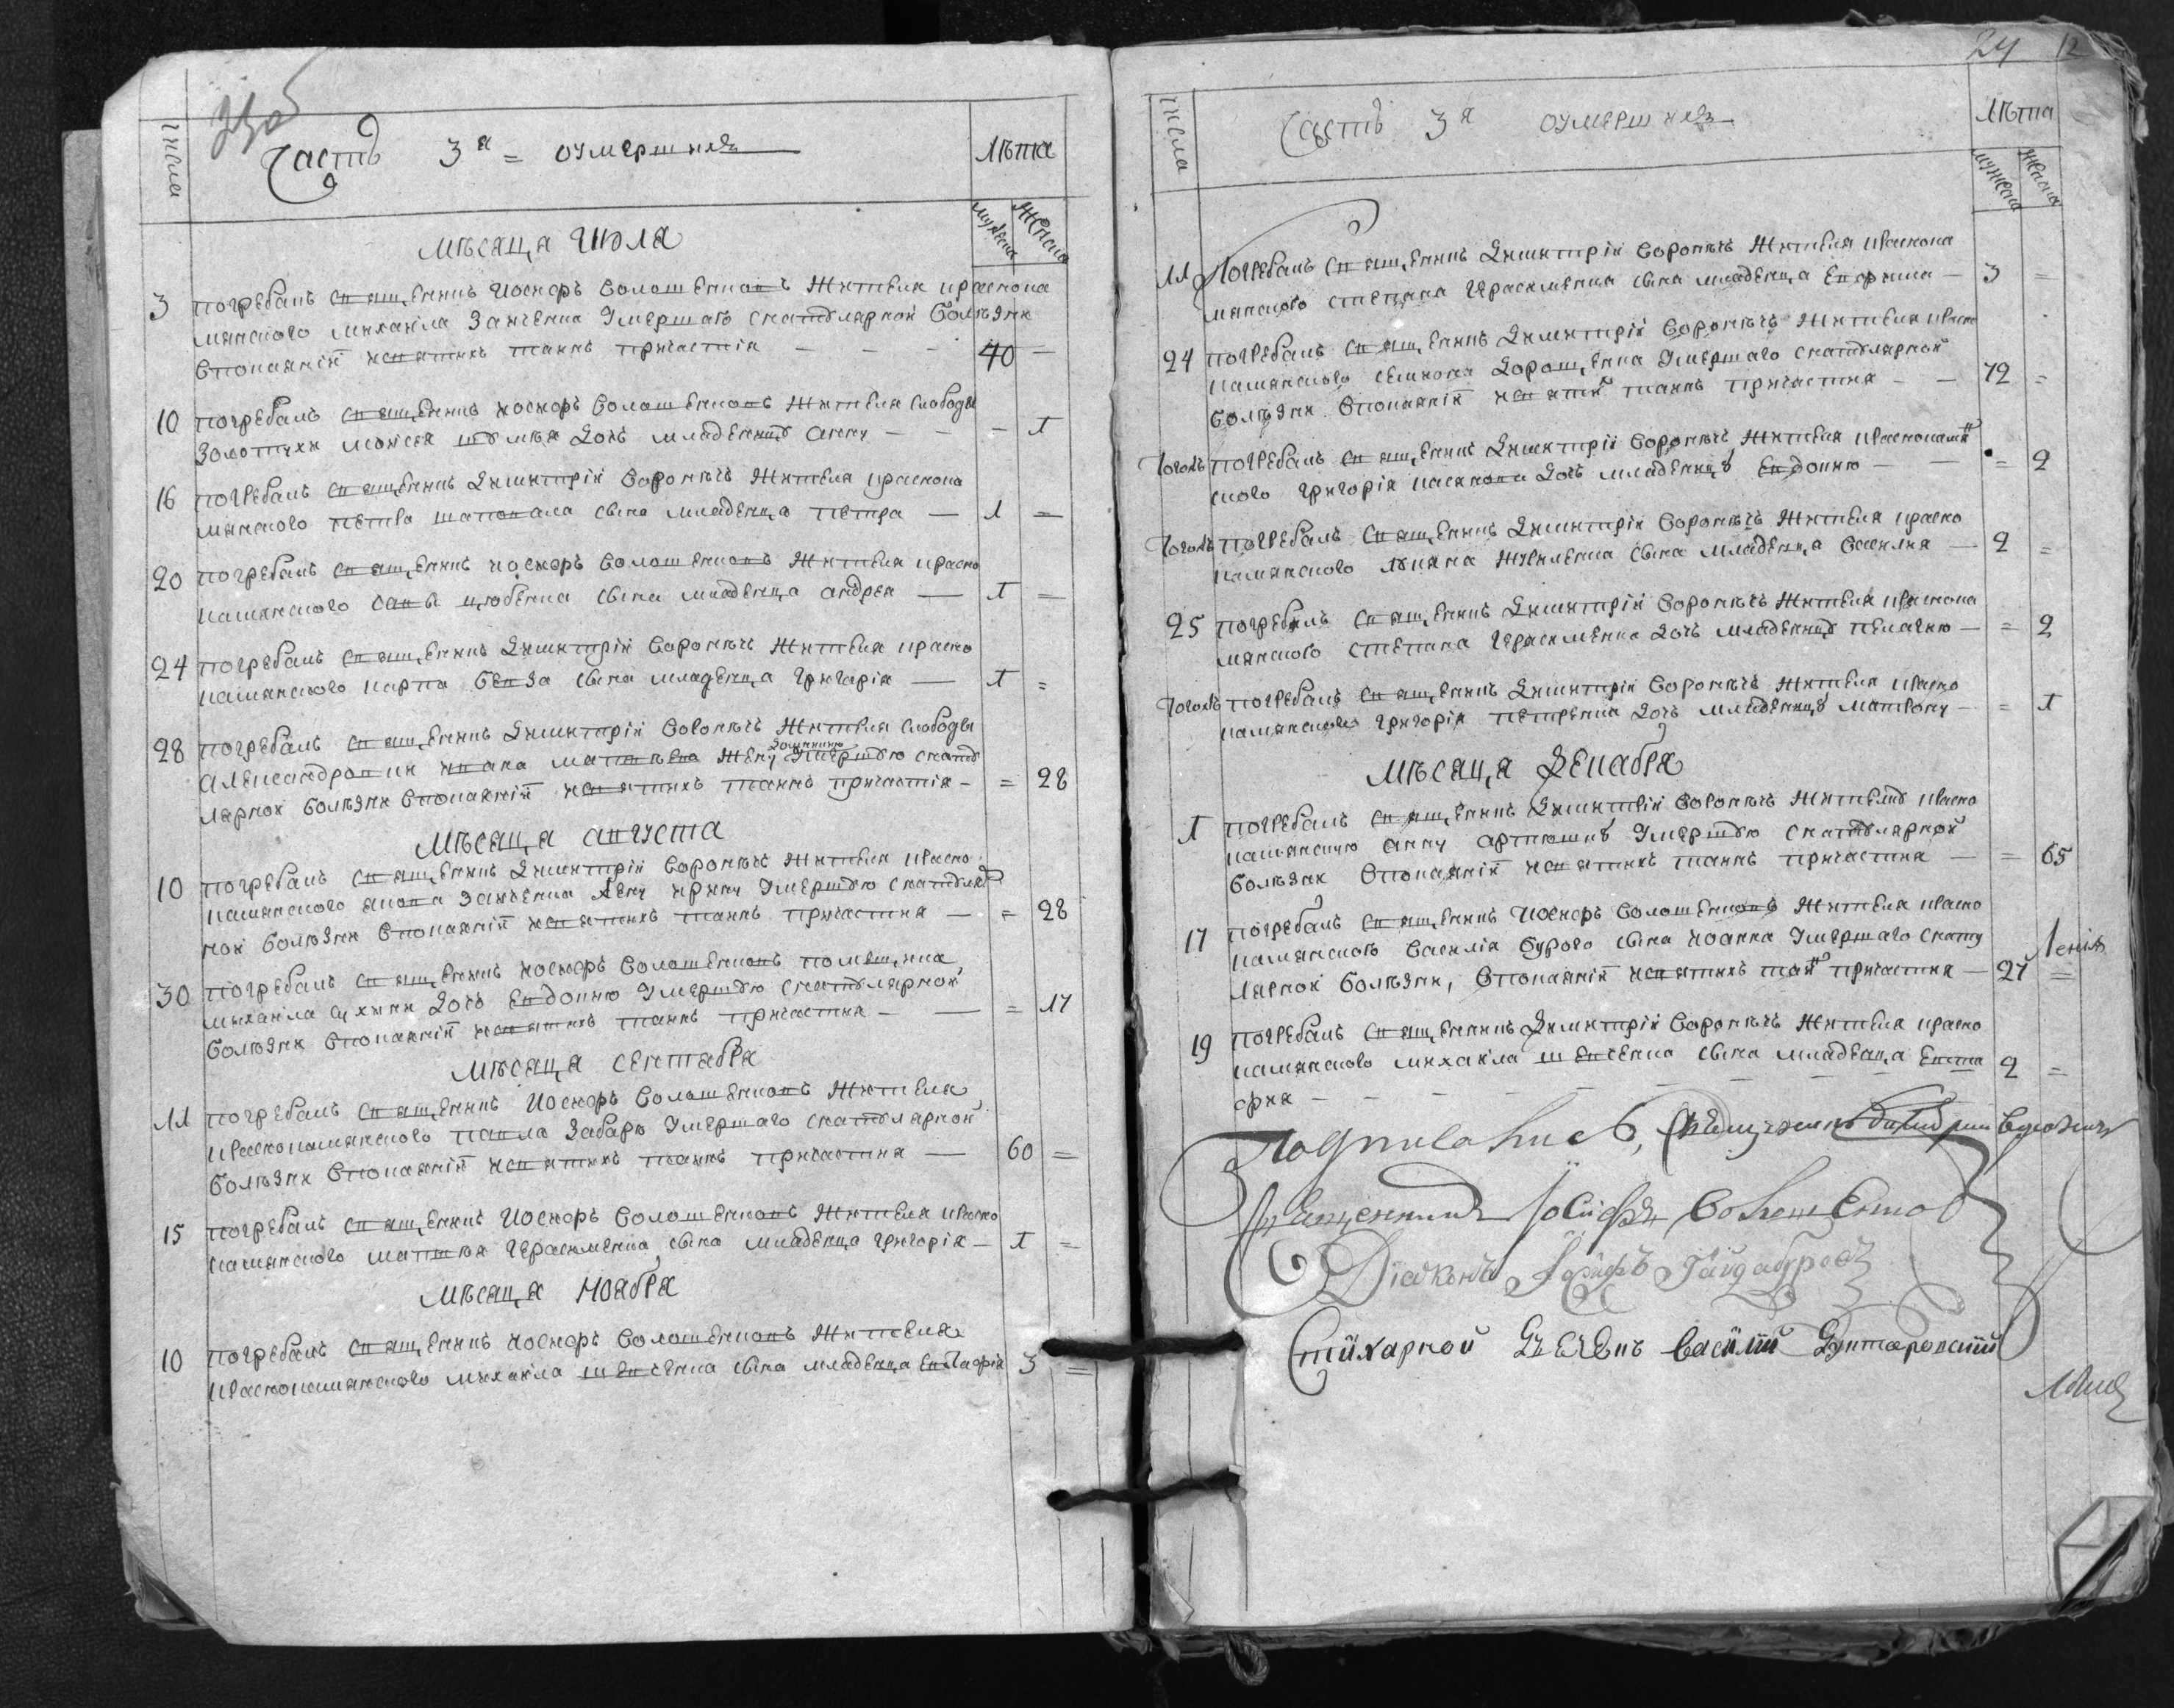 числа
Часть 3я = оумершихъ
лѣта
мужеска
женска
мѣсяца июля
3 погребалъ священикъ иосифъ волошениовъ жителя краснока
мянского михаила занченка умершаго скатулярной болѣзни
споповнія
40 =
10 погребалъ священикъ иосифъ волошениовъ жителя слободы
золотухи моисея дочь младеницу анну — — — 1
16 погребалъ священикъ димитрій воронычъ жителя краснока
мянского петра шаповала сына младенца петра — 1 =
20 погребалъ священикъ иосифъ волошениовъ жителя красно
камянского савы цюбенка сына младенца андрея — 1 =
24 погребалъ священикъ димитрій воронычъ жителя красно
камянского карпа беза сына младенца григорія — 1 =
28 погребалъ священикъ димитрій воронычъ жителя слободы
александровки ивана матвѣева жену умершую скату
домникию
лярной болѣзни исвятихъ таинъ причастія — = 28
мѣсяца августа
10 погребалъ священикъ димитрій воронычъ жителя красно
камянского якова занченка жену ирину умершую скатуляр
ной болѣзни исвятихъ таинъ причастия — = 28
30 погребалъ священикъ иосифъ волошениовъ помещика
михаила сухини дочь евдокию умершую скатулярной
болѣзни исвятихъ таинъ причастия — — = 17
мѣсяца сентабра
11 погребалъ священикъ иосифъ волошениовъ жителя
краснокамянского павла забару умершаго скатулярной
болѣзни исвятихъ таинъ причастия — 60 =
15 погребалъ священикъ иосифъ волошениовъ жителя красно
камянского матвея герасименка сына младенца григорія — 1 =
мѣсяца ноабра
10 погребалъ священикъ иосифъ волошениовъ жителя
краснокамянского михаила шевченка сына младенца евстафія 3 =
24 12
числа
Часть 3я оумершихъ
лѣта
мужеска
женска
11 погребалъ священикъ димитрій воронычъ жителя краснока
мянского степана герасименка сына младенца — 3 =
24 погребалъ священикъ димитрій воронычъ жителя красно
камянского семиона дорошенка умершаго скатулярной
болѣзни исвяти таинъ причастия — — 72 =
тогожъ погребалъ священикъ димитрій воронычъ жителя краснокамян
ского григорія дочь младеницу евдокию — — = 2
тогожъ погребалъ священикъ димитрій воронычъ жителя красно
камянского лукяна сына младенца василия — 2 =
25 погребалъ священикъ димитрій воронычъ жителя краснока
мянского степана герасименка дочь младеницу пелагию — = 2
тогожъ погребалъ священикъ димитрій воронычъ жителя красно
камянского григорія петренка дочь младеницу матрону — = 1
мѣсяца декабра
1 погребалъ священикъ димитрій воронычъ жителку красно
камянскую анну артюшку умершую скатулярной
болѣзни исвятихъ таинъ причастия — = 65
17 погребалъ священикъ иосифъ волошениовъ жителя красно
камянского василія бурого сына иоанна умершаго скату
лярной болѣзни, исвятихъ таин причастия — 27 =
19 погребалъ священикъ димитрій воронычъ жителя красно
камянского михаила шевченка сына младенца евста 2 =
фия — — — —
Священникъ Димитрий Воронычъ
Священникъ Иосифъ Волошениов
Діаконъ Иосифъ Гайдабуровъ
Стихарной Дьячекъ василий